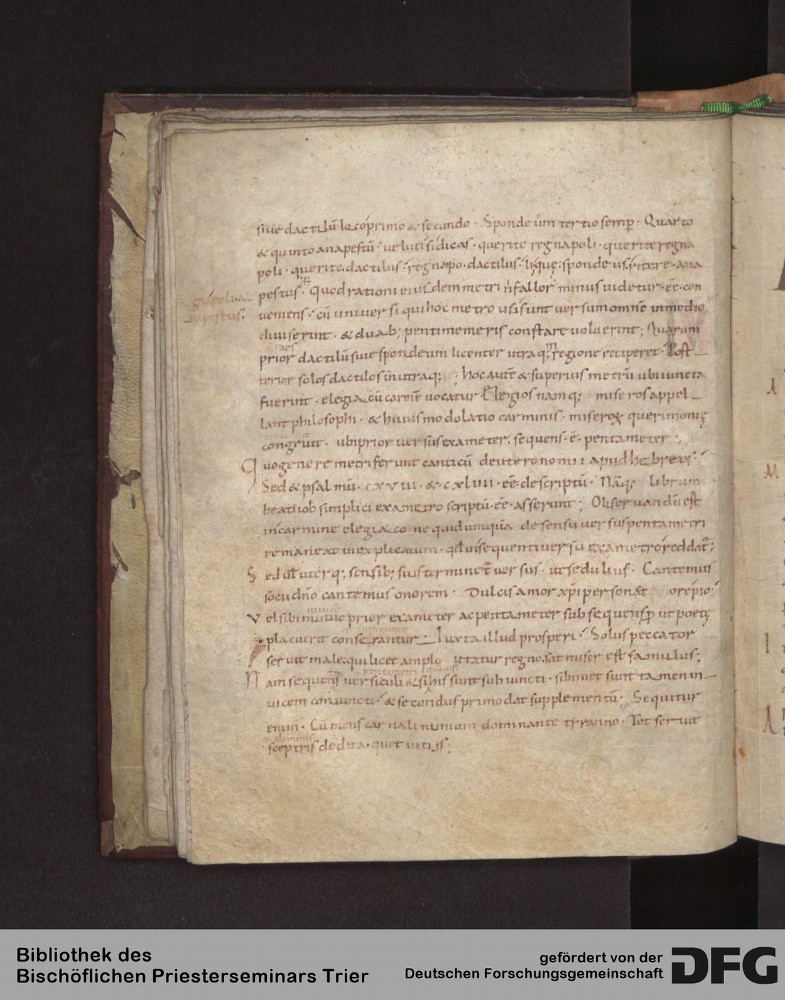 siue dactilū loco primo & secundo · Sponde ūm tertio semp · Quarto
& quinto anapestū · uelut si dicas · querite regna poli · querite regna
poli · querite · dactilus · regna po · dactilus · spondeus · rite re · ana
pestus · Quod rationi eiusdem metri ñ fallor minus uidetur · eē · con
ueniens · cū uniuersi qui hoc metro usi sunt uersum omnē in medio
diuiserint · & duab; pentimemeris constare uoluerint; Quarum
prior dactilū siue spondeum licenter utraq; regione reciperet · Post
terior solos dactilos in utraq; ; hoc autē & superius metrū ubi iuncta
fuerint · elegiacū carmē uocatur Elegios namq; miseros appel
lant philosophi · & huius modolatio carminis · miseroꝝ querimoniis
congruit · ubi prior uersus exameter, sequens · ē · pentameter ·,
Quo genere metri ferunt canticū deuteronomii apud hebreos ·
Sed & psalmū · cxviii · & cxliiii · eē descriptū · Nāq; librum
beati iob simplici exametro scriptū · eē asserunt; Obseruandū est
in carmine elegiaco ne quid unquā de sensu uersus pentametri
remaneat inexplicatum · qđ in sequenti uersu exametro reddat̄;
Sed uł uterq; sensib; suis terminet̄ uersus · ut sedulius · Cantemus
socii dño cantemus onorem · Dulcis amor xpi personet ore pio ·
Vel sibi inuicē prior exameter ac pentameter subsequens p ut poetę
placuerit conserantur · Iuxta illud prosperi · Solus peccator
seruit male qui licet amplo utatur regno sat miser est famulus;
Nam sequens uersiculi & si his sunt subiuncti · sibimet sunt tamen in
uicem coniuncti · & secundus primo dat supplementū · Sequitur
enim · Cū mens carnali nimium dominante tyranno · Tot seruit
sceptris dedita · quot uitiis;
Bibliothek des
Bischöflichen Priesterseminars Trier
gefördert von der
Deutschen Forschungsgemeinschaft
DFG